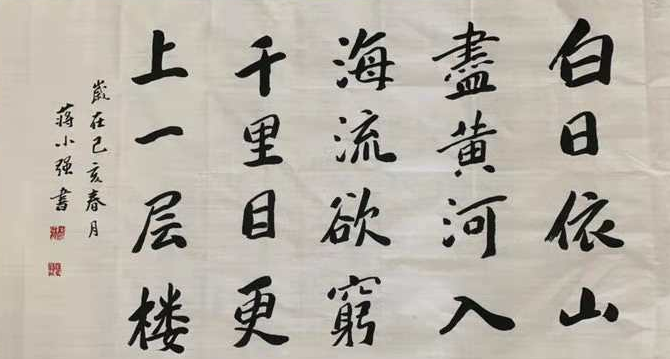 白日依山
盡黄河入
海流欲窮
千里目更
上一层楼
歲在己亥春月
蒋小强書